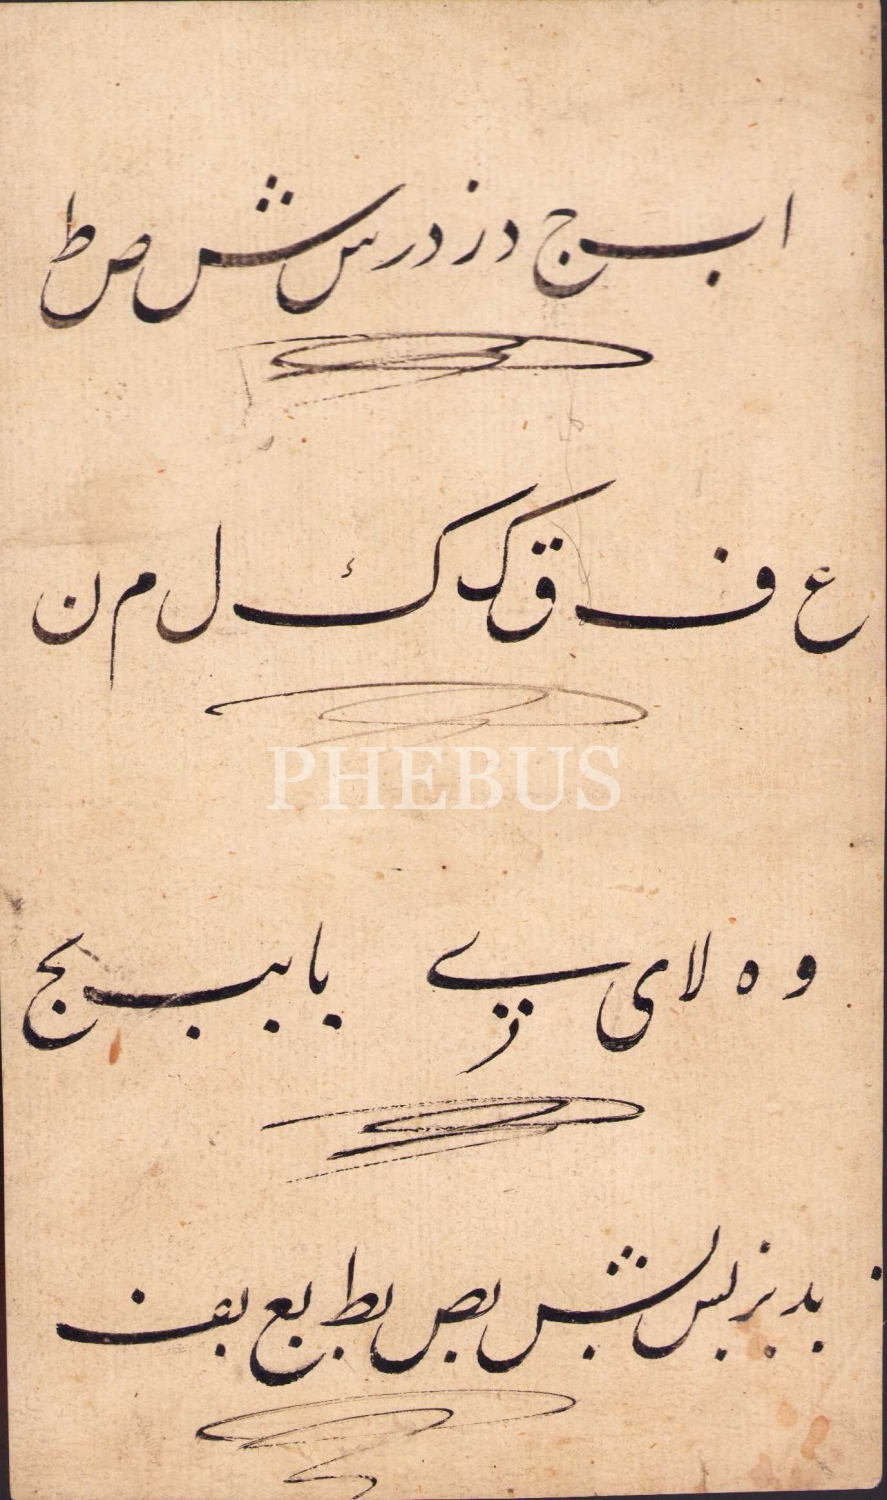 ا ب ج د ز د ر س ش ص ط
ع ف ق ک ک ل م ن
PHEBUS
و ه لا ی ے با بب بج
بد بز بس بش بص بط بع بف